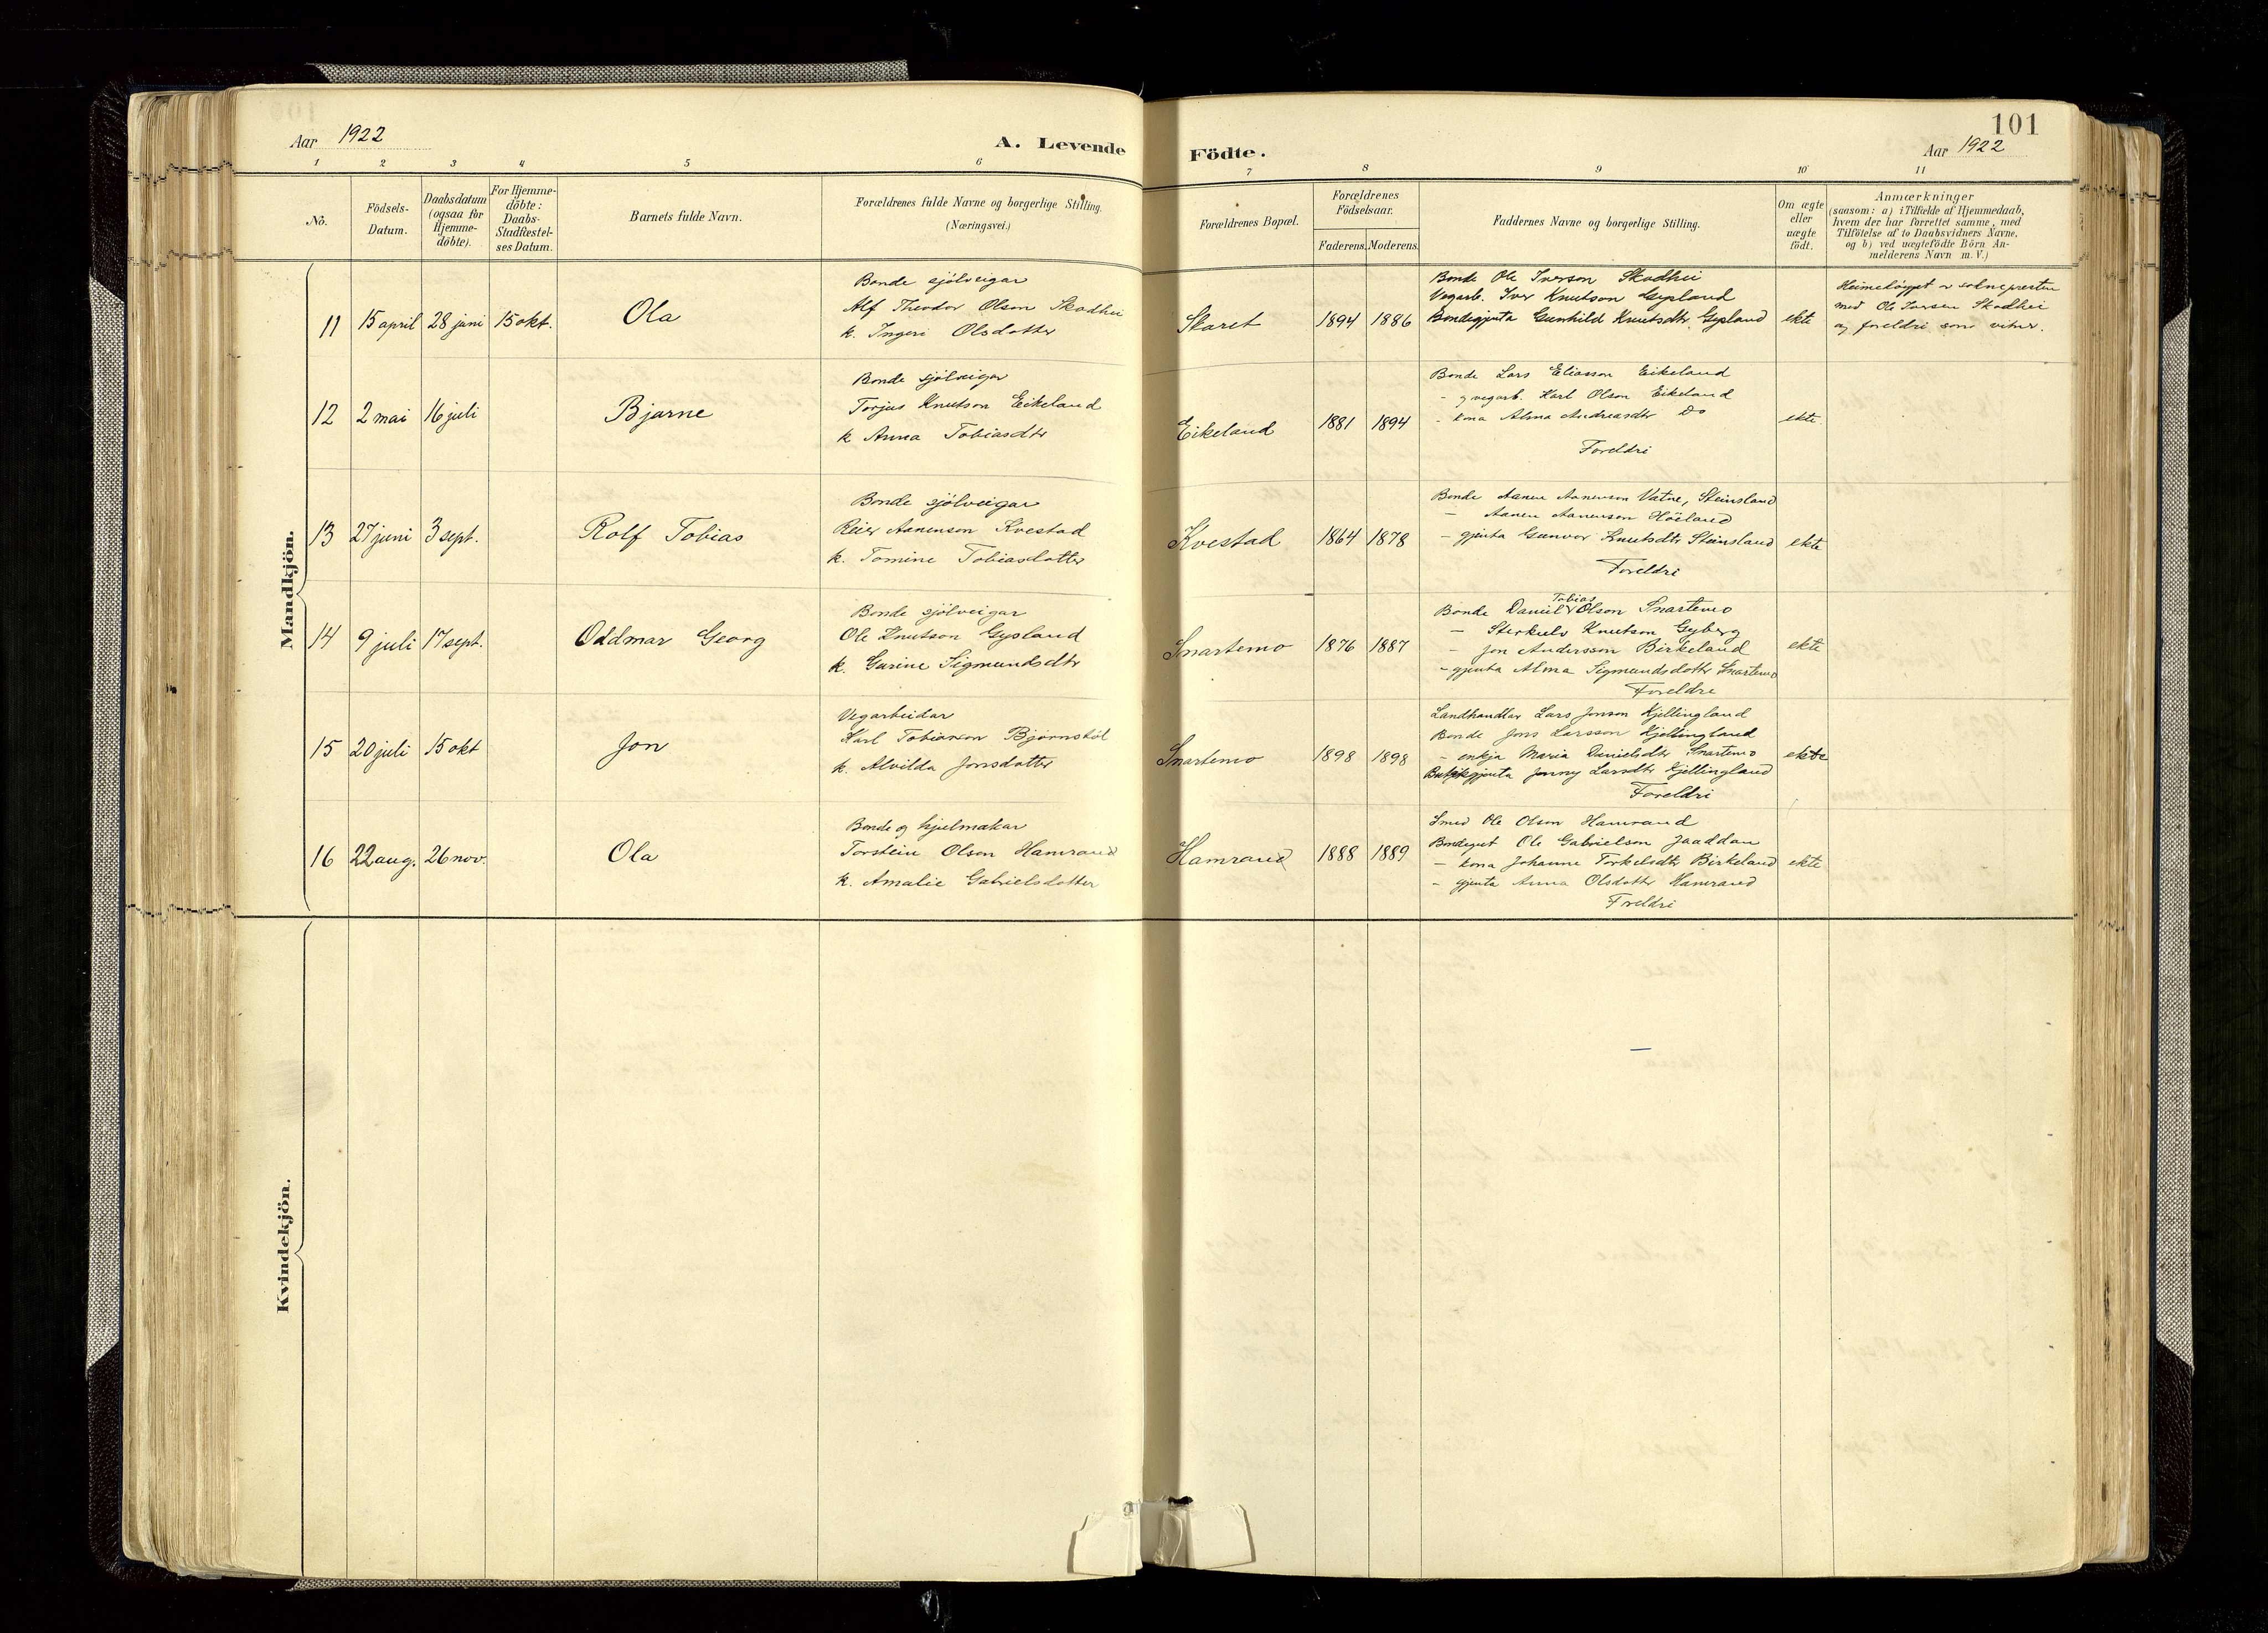 101
Aar 1922
A. Levende Födte.
Aar 1922
1 2 3 4 5 6 7 8 9 10 11
No.
Födsels-
Datum.
Daabsdatum
(ogsaa för
Hjemme-
döbte).
For Hjemme-
döbte:
Daabs-
Stadfæstel-
ses Datum.
Barnets fulde Navn.
Forældrenes fulde Navne og borgerlige Stilling.
(Næringsvei.)
Forældrenes Bopæl.
Forældrenes
Födselsaar.
Faderens. Moderens.
Faddernes Navne og borgerlige Stilling.
Om ægte
eller
uægte
födt.
Anmærkninger
(saasom: a) i Tilfælde af Hjemmedaab,
hvem der har forrettet samme, med
Tilföielse af to Daabsvidners Navne,
og b) ved uægtefödte Börn An-
melderens Navn m. V.)
Mandkjön.
11 15 april 28 juni 15 okt. Ola
Bonde sjölveigar
Alf Theodor Olson Skadhei
k. Ingeri Olsdotter
Skaret 1894 1886
Bonde Ole Iverson Skadhei
Vegarb. Iver Knutson Gysland
Bondegjenta Gunhild Knutsdtr. Gysland
ekte
Heimedöypt av soknepresten
med Ole Iversen Skadhei
og foreldri som vitner.
12 2 mai 16 juli Bjarne
Bonde sjölveigar
Torjus Knutson Eikeland
k. Anna Tobiasdtr
Eikeland 1881 1894
Bonde Lars Eliasson Eikeland
- og vegarb. Karl Olson Eikeland
- kona Alma Andreasdtr Do
Foreldri
ekte.
13 27 juni 3 sept. Rolf Tobias
Bonde sjölveigar
Reier Aanenson Kvestad
k. Tomine Tobiasdotter
Kvestad 1864 1878
Bonde Aanen Aanenson Vatne, Steinsland
- Aanen Aanenson Höiland
- gjenta Gunvor Knutsdtr Steinsland
Foreldri
ekte
14 9 juli 17 sept. Oddmar Georg
Bonde sjölveigar
Ole Knutson Gysland
k. Gurine Sigmundsdtr
Snartemo 1876 1887
Tobias
Bonde Daniel Olson Snartemo
- Sterkulv Knutson Gyberg
- Jon Andersson Birkeland
- gjenta Alma Sigmundsdotter Snartemo
Foreldre
ekte
15 20 juli 15 okt Jon
Vegarbeidar
Karl Tobiasson Bjørnstöl
k. Alvilda Jonsdotter
Snartemo 1898 1898
Landhandlar Lars Jonson Kjellingland
Bonde Jons Larsson Kjellingland
- enkja Maria Danielsdtr Snartemo
gjenta Jonny Larsdtr Kjellingland
Foreldri
ekte
16 22 aug. 26 nov. Ola
Bonde og hjulmakar
Torstein Olson Hamrand
k. Amalie Gabrielsdotter
Hamrand 1888 1889
Smed Ole Olson Hamrand
Bondegut Ole Gabrielson Jaaddan
- kona Johanne Torkelsdtr Birkeland
- gjenta Anna Olsdotter Hamrand
Foreldri
ekte
Kvindekjön.